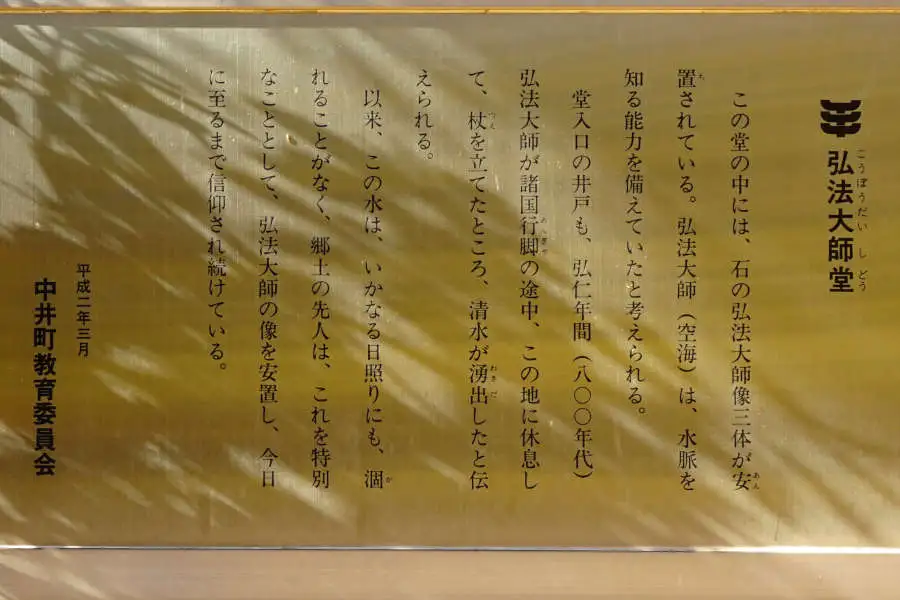 弘法大師堂
こうぼうだいしどう
この堂の中には、石の弘法大師像三体が安
置されている。弘法大師（空海）は、水脈を
知る能力を備えていたと考えられる。
堂入口の井戸も、弘仁年間（八〇〇年代）
弘法大師が諸国行脚の途中、この地に休息し
て、杖を立てたところ、清水が湧出したと伝
えられる。
以来、この水は、いかなる日照りにも、涸
れることがなく、郷土の先人は、これを特別
なこととして、弘法大師の像を安置し、今日
に至るまで信仰され続けている。
平成二年三月
中井町教育委員会